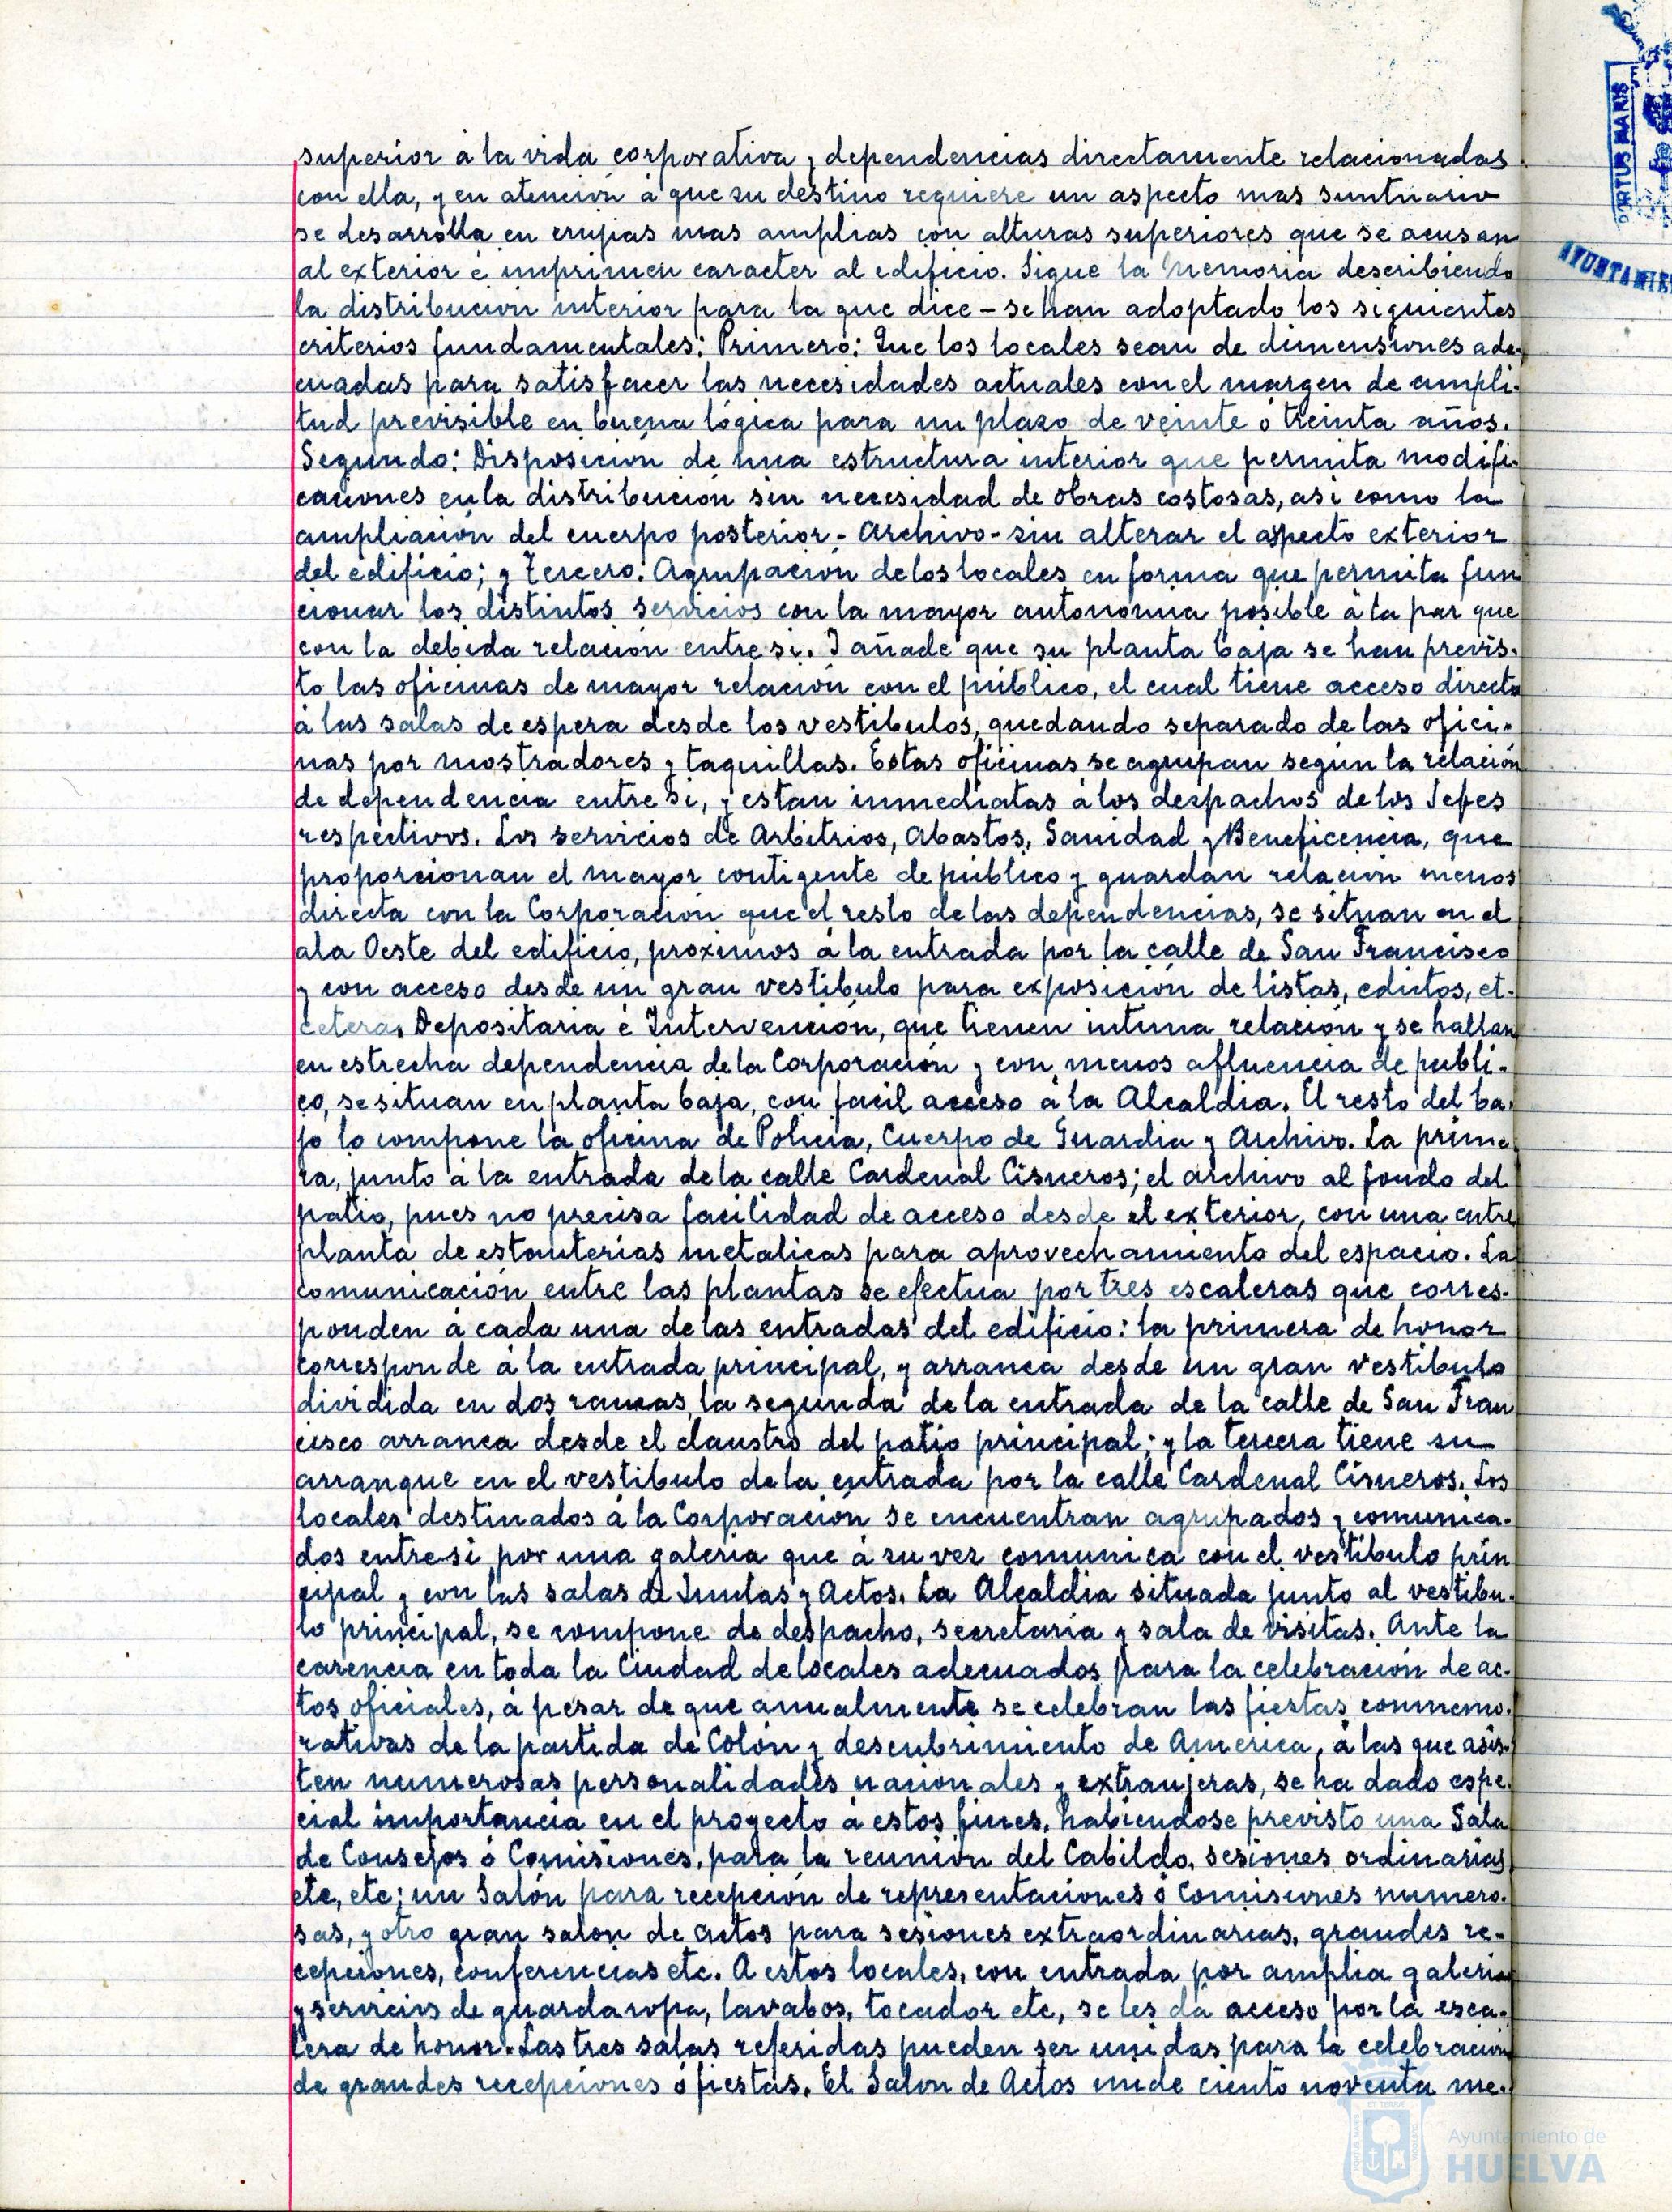 superior á la vida corporativa y dependencias directamente relacionadas
con ella, y en atención á que su destino requiere un aspecto mas suntuario
se desarrolla en crujias mas amplias con alturas superiores que se acusan
al exterior é imprimen caracter al edificio. Sigue la Memoria describiendo
la distribucion interior para la que dice - se han adoptado los siguientes
criterios fundamentales: Primero: Que los locales sean de dimensiones ade-
cuadas para satisfacer las necesidades actuales con el margen de ampli-
tud previsible en buena lógica para un plazo de veinte ó treinta años.
Segundo: Disposición de una estructura interior que permita modifi-
caciones en la distribución sin necesidad de obras costosas, asi como la
ampliación del cuerpo posterior - Archivo - sin alterar el aspecto exterior
del edificio; y Tercero: Agrupacion de los locales en forma que permita fun
cionar los distintos servicios con la mayor autonomia posible á la par que
con la debida relacion entre si. Y añade que su planta baja se han previs-
to las oficinas de mayor relacion con el público, el cual tiene acceso directo
á las salas de espera desde los vestibulos, quedando separado de las ofici-
nas por mostradores y taquillas. Estas oficinas se agrupan según la relación
de dependencia entre si, y estan inmediatas á los despachos de los Jefes
respectivos. Los servicios de Arbitrios, Abastos, Sanidad y Beneficencia, que
proporcionan el mayor contigente de público y guardan relacion menos
directa con la Corporación que el resto de las dependencias, se situan en el
ala Oeste del edificio, proximos á la entrada por la calle de San Francisco
y con acceso desde un gran vestibulo para exposición de listas, edictos, et-
cetera. Depositaria é Intervención, que tienen intima relación y se hallan
en estrecha dependencia de la Corporación y con menos afluencia de publi-
co, se situan en planta baja, con facil acceso á la Alcaldia. El resto del ba-
jo lo compone la oficina de Policia, Cuerpo de Guardia y Archivo. La prime
ra, junto á la entrada de la calle Cardenal Cisneros; el archivo al fondo del
patio, pues no precisa facilidad de acceso desde el exterior, con una entre
planta de estanterias metalicas para aprovechamiento del espacio. La
comunicación entre las plantas se efectua por tres escaleras que corres-
ponden á cada una de las entradas del edificio: la primera de honor
corresponde á la entrada principal, y arranca desde un gran vestibulo
dividida en dos ramas, la segunda de la entrada de la calle de San Fran
cisco arranca desde el claustro del patio principal; y la tercera tiene su
arranque en el vestibulo de la entrada por la calle Cardenal Cisneros. Los
locales destinados á la Corporación se encuentran agrupados y comunica-
dos entre si por una galeria que á su vez comunica con el vestibulo prin
cipal y con las salas de Juntas y Actos. La Alcaldia situada junto al vestibu-
lo principal, se compone de despacho, secretaria y sala de visitas. Ante la
carencia en toda la Ciudad de locales adecuados para la celebración de ac-
tos oficiales, á pesar de que anualmente se celebran las fiestas conmemo-
rativas de la partida de Colón y descubrimiento de America, á las que asis-
ten numerosas personalidades nacionales y extranjeras, se ha dado espe-
cial importancia en el proyecto á estos fines, habiendose previsto una Sala
de Consejos ó Comisiones, para la reunión del Cabildo, sesiones ordinarias
etc, etc; un Salón para recepción de representaciones ó Comisiones numero-
sas, y otro gran salon de actos para sesiones extraordinarias, grandes re-
cepciones, conferencias etc. A estos locales, con entrada por amplia galeria
y servicios de guardaropa, lavabos, tocador etc, se les dá acceso por la esca-
lera de honor. Las tres salas referidas pueden ser unidas para la celebracion
de grandes recepciones ó fiestas. El Salon de Actos mide ciento noventa me-
PORTUS MARIS
AYUNTAMIE
Ayuntamiento de
HUELVA